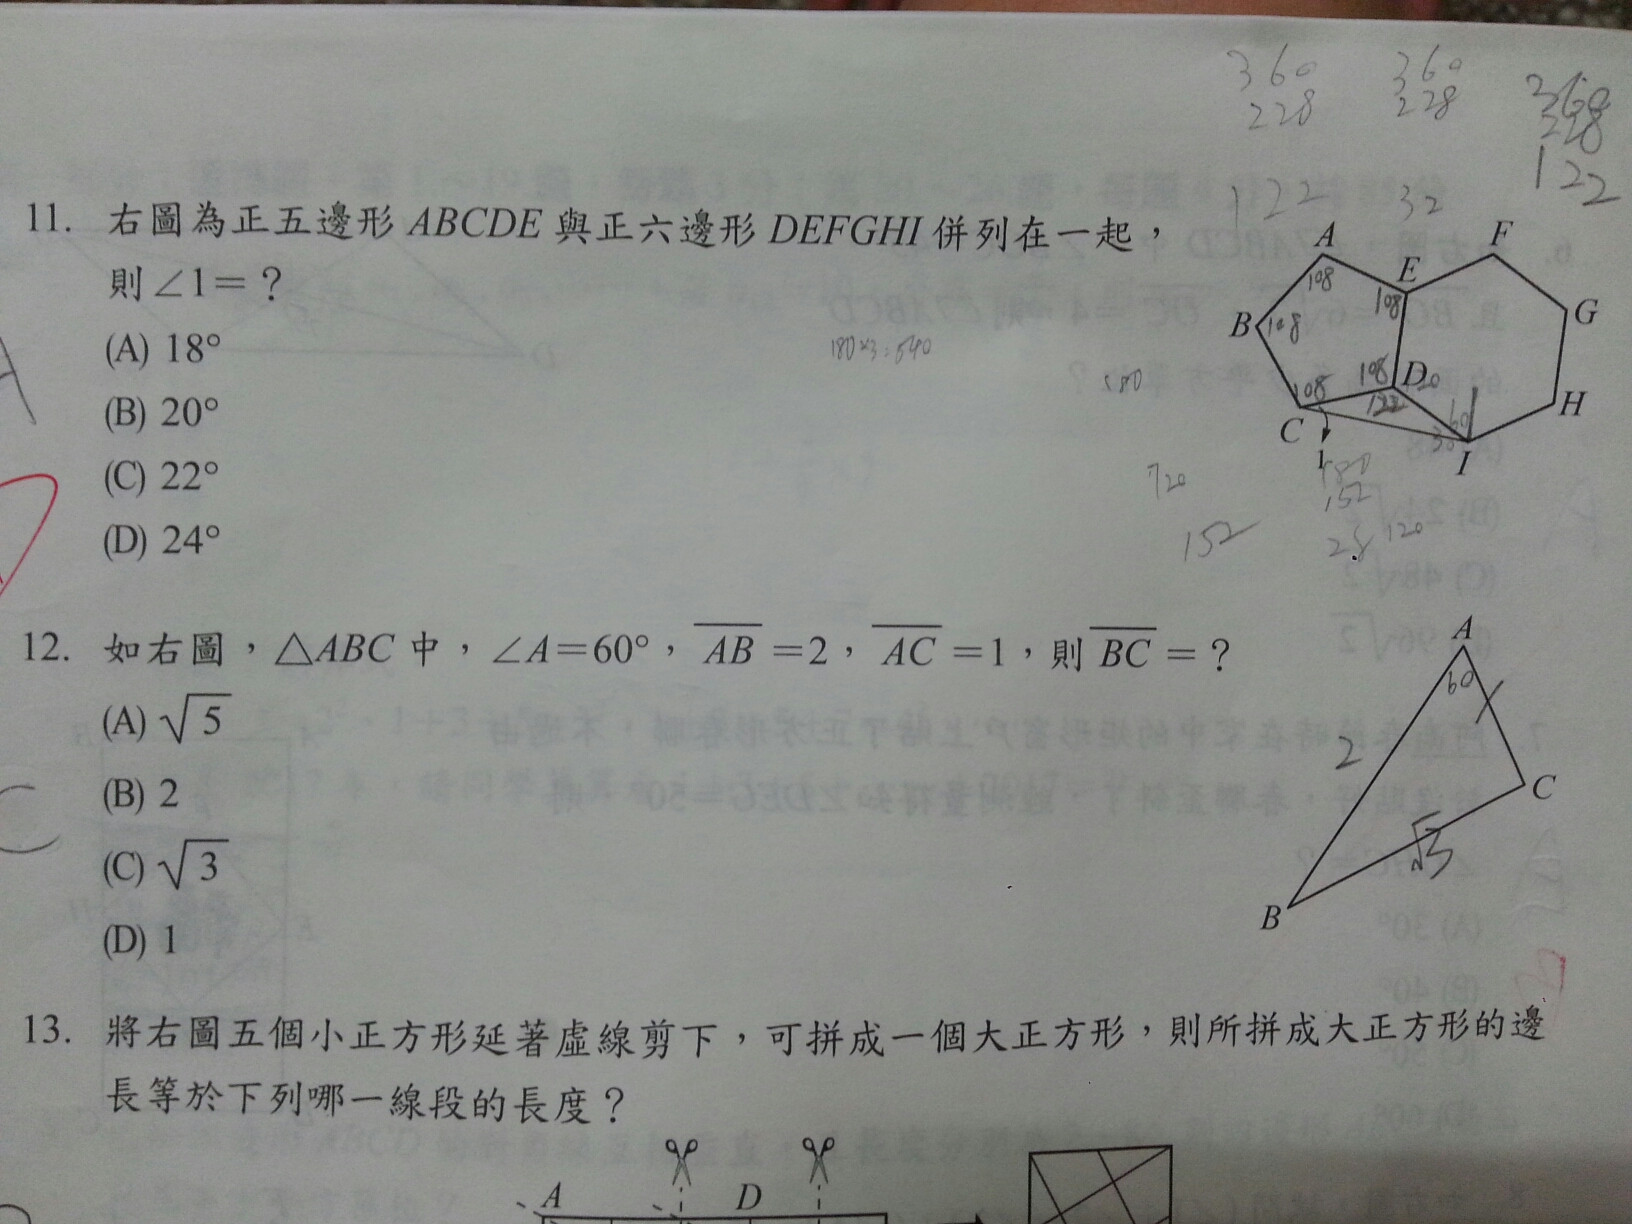 360 360 360
228 228 228
122 32 122
11. 右圖為正五邊形 ABCDE 與正六邊形 DEFGHI 併列在一起，
則∠1=？
(A) 18°
(B) 20°
(C) 22°
(D) 24°
180×3=540
A F
108 E
B 108 108 G
108 108 D 120
122 60 H
C 1 I
720 180
152 152
28 120
12. 如右圖，△ABC 中，∠A=60°，AB=2，AC=1，則BC=？
(A) √5
(B) 2
(C) √3
(D) 1
A
60
2
C
√3
B
13. 將右圖五個小正方形延著虛線剪下，可拼成一個大正方形，則所拼成大正方形的邊
長等於下列哪一線段的長度？
A D